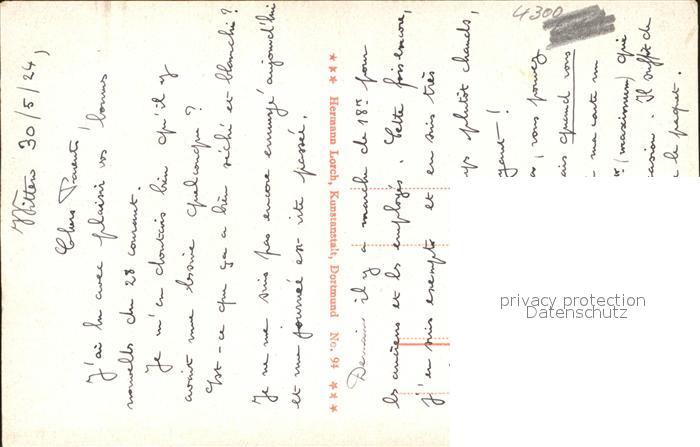 Witten 30/5/24,
Chers Parents!
J'ai lu avec plaisir vos bonnes
nouvelles du 28 courant.
Je m'en doutais bien qu'il y
avait une lessive quelconque?
Est-ce que ça a bien séché et blanchi?
Je ne me suis pas encore ennuyé aujourd'hui
et ma journée est vite passée.
*** Hermann Lorch, Kunstanstalt, Dortmund No. 94 ***
Demain il y a marche de 18 pour
les anciens et les employés. Cette fois encore,
j'en suis exempté et en suis très
plutôt chauds,
vous pouvez
quand vous
ma carte un
(maximum) que
Il suffit de
le paquet.
4300
privacy protection
Datenschutz